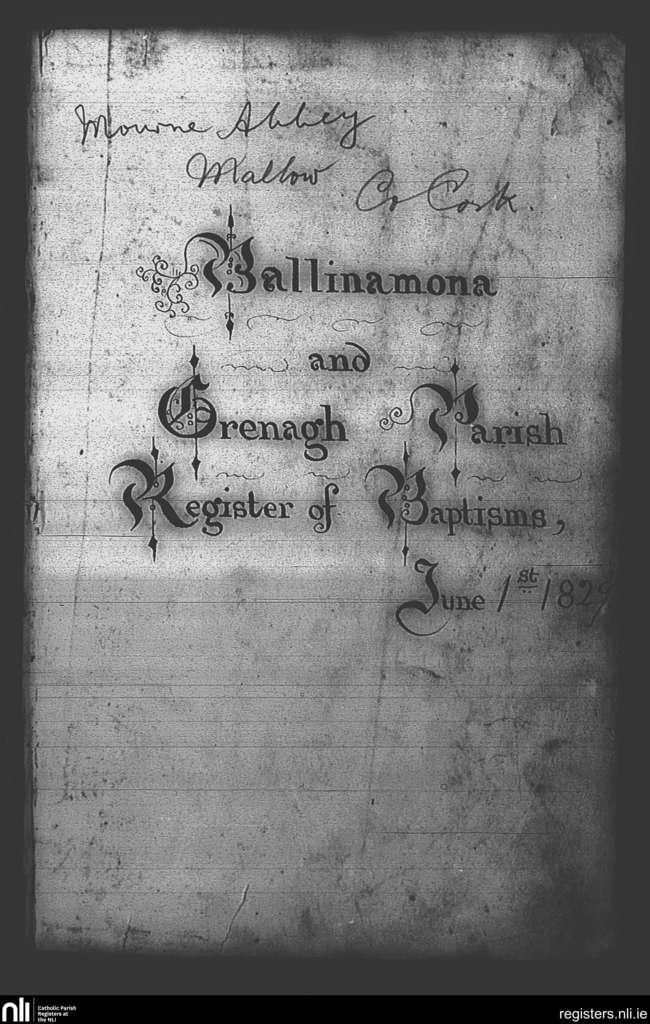 Mourne Abbey
Mallow
Co Cork.
Ballinamona
and
Grenagh Parish
Register of Baptisms,
June 1st 1829
nli
Catholic Parish
Registers at
the NLI
registers.nli.ie